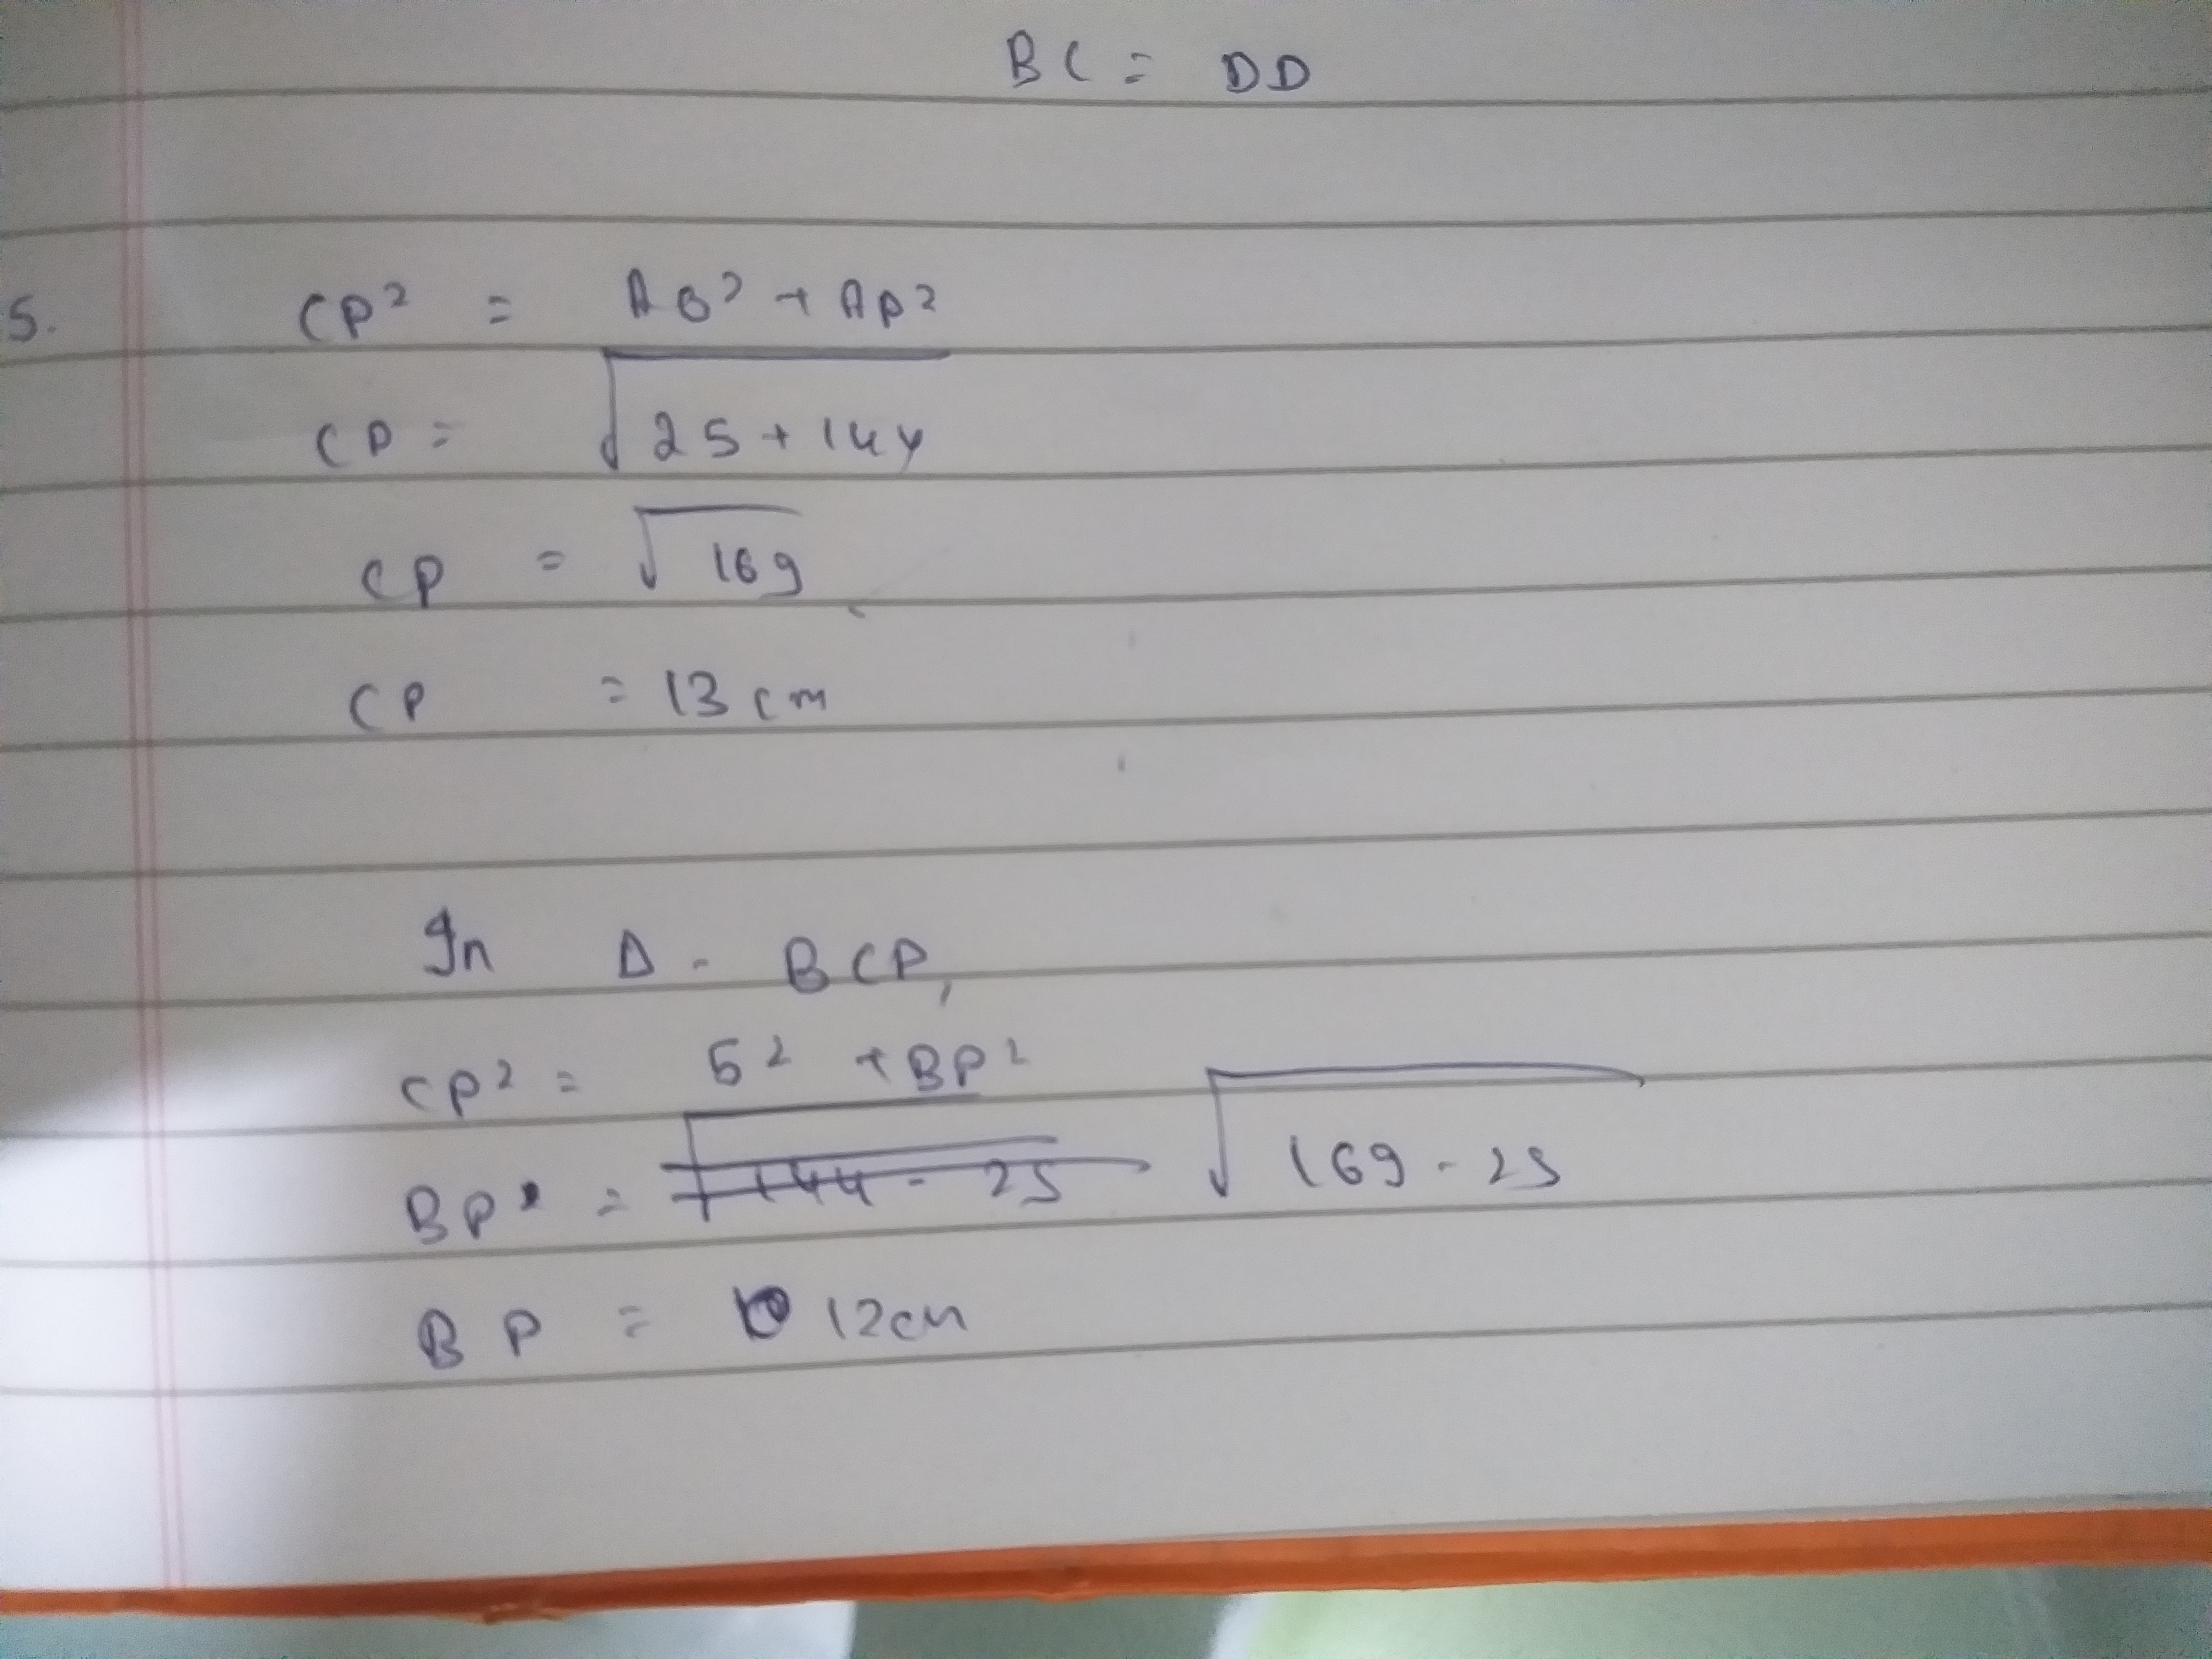 BC = DD
5. CP² = AB² + AP²
CP = √25+144
CP = √169
CP = 13 cm
In Δ - BCP,
CP² = 5² + BP²
BP = √144 - 25 √169 - 25
BP = 12cm